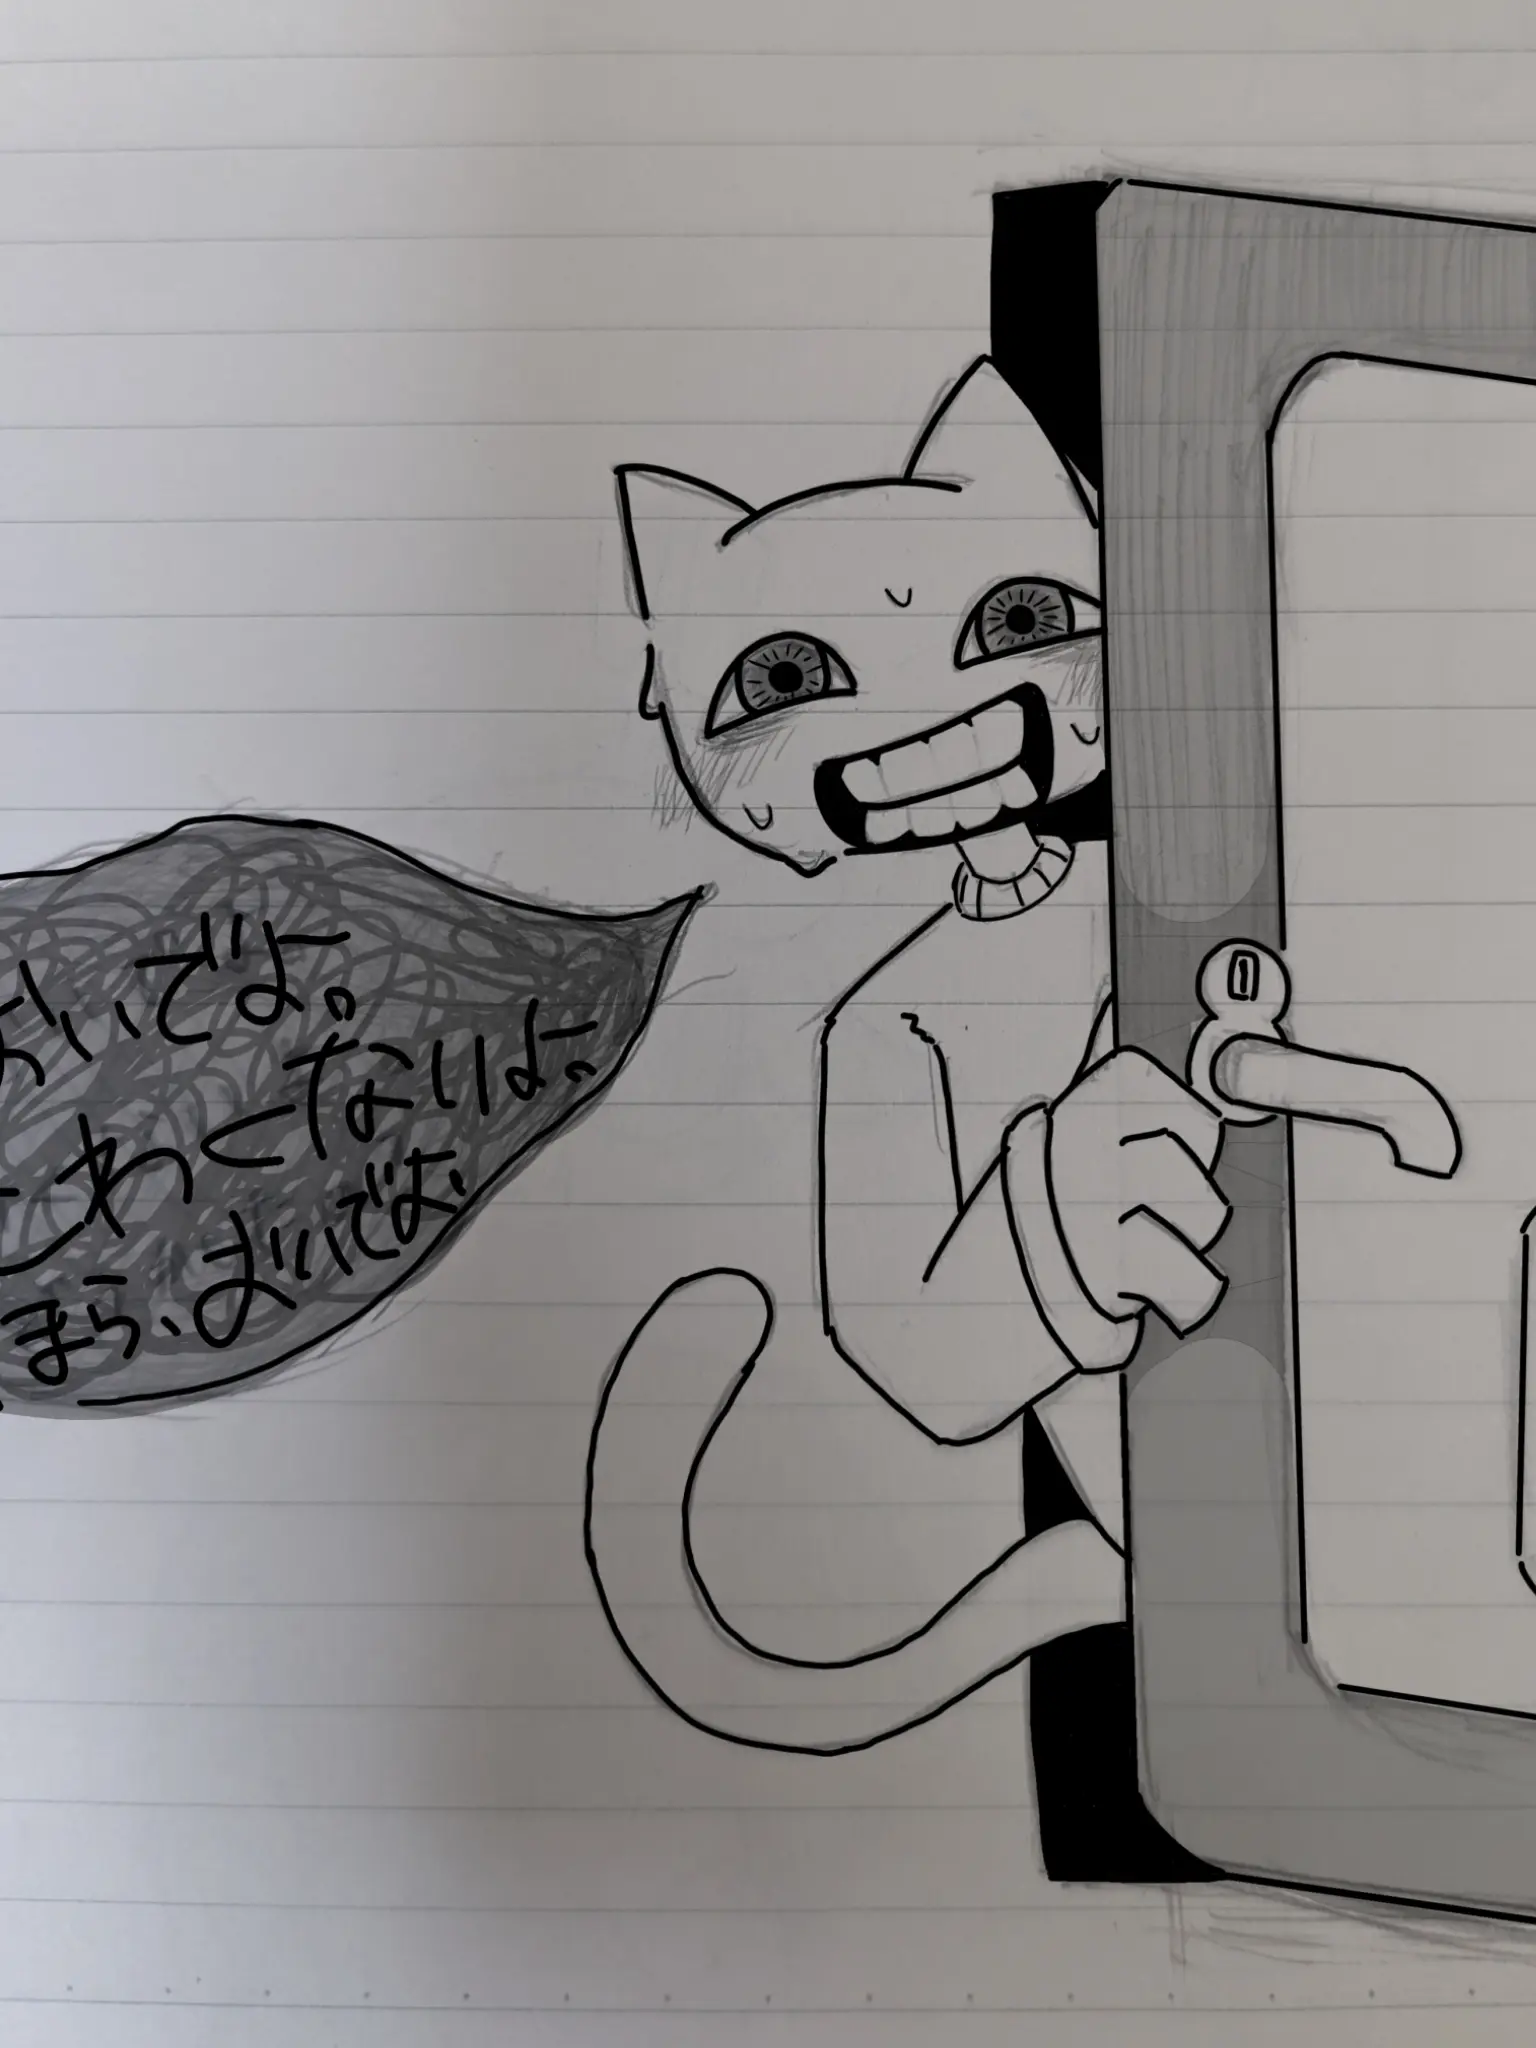 おいでよ。
こわくないよ。
まら、おいでよ